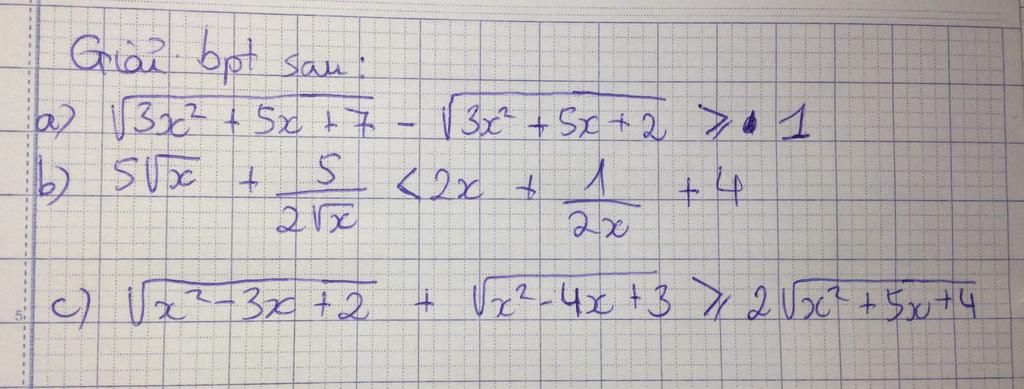 Giải bpt sau:
a) √(3x² + 5x + 7) - √(3x² + 5x + 2) ≥ 1
b) 5√x + 5/(2√x) < 2x + 1/(2x) + 4
c) √(x² - 3x + 2) + √(x² - 4x + 3) ≥ 2√(x² + 5x + 4)
5